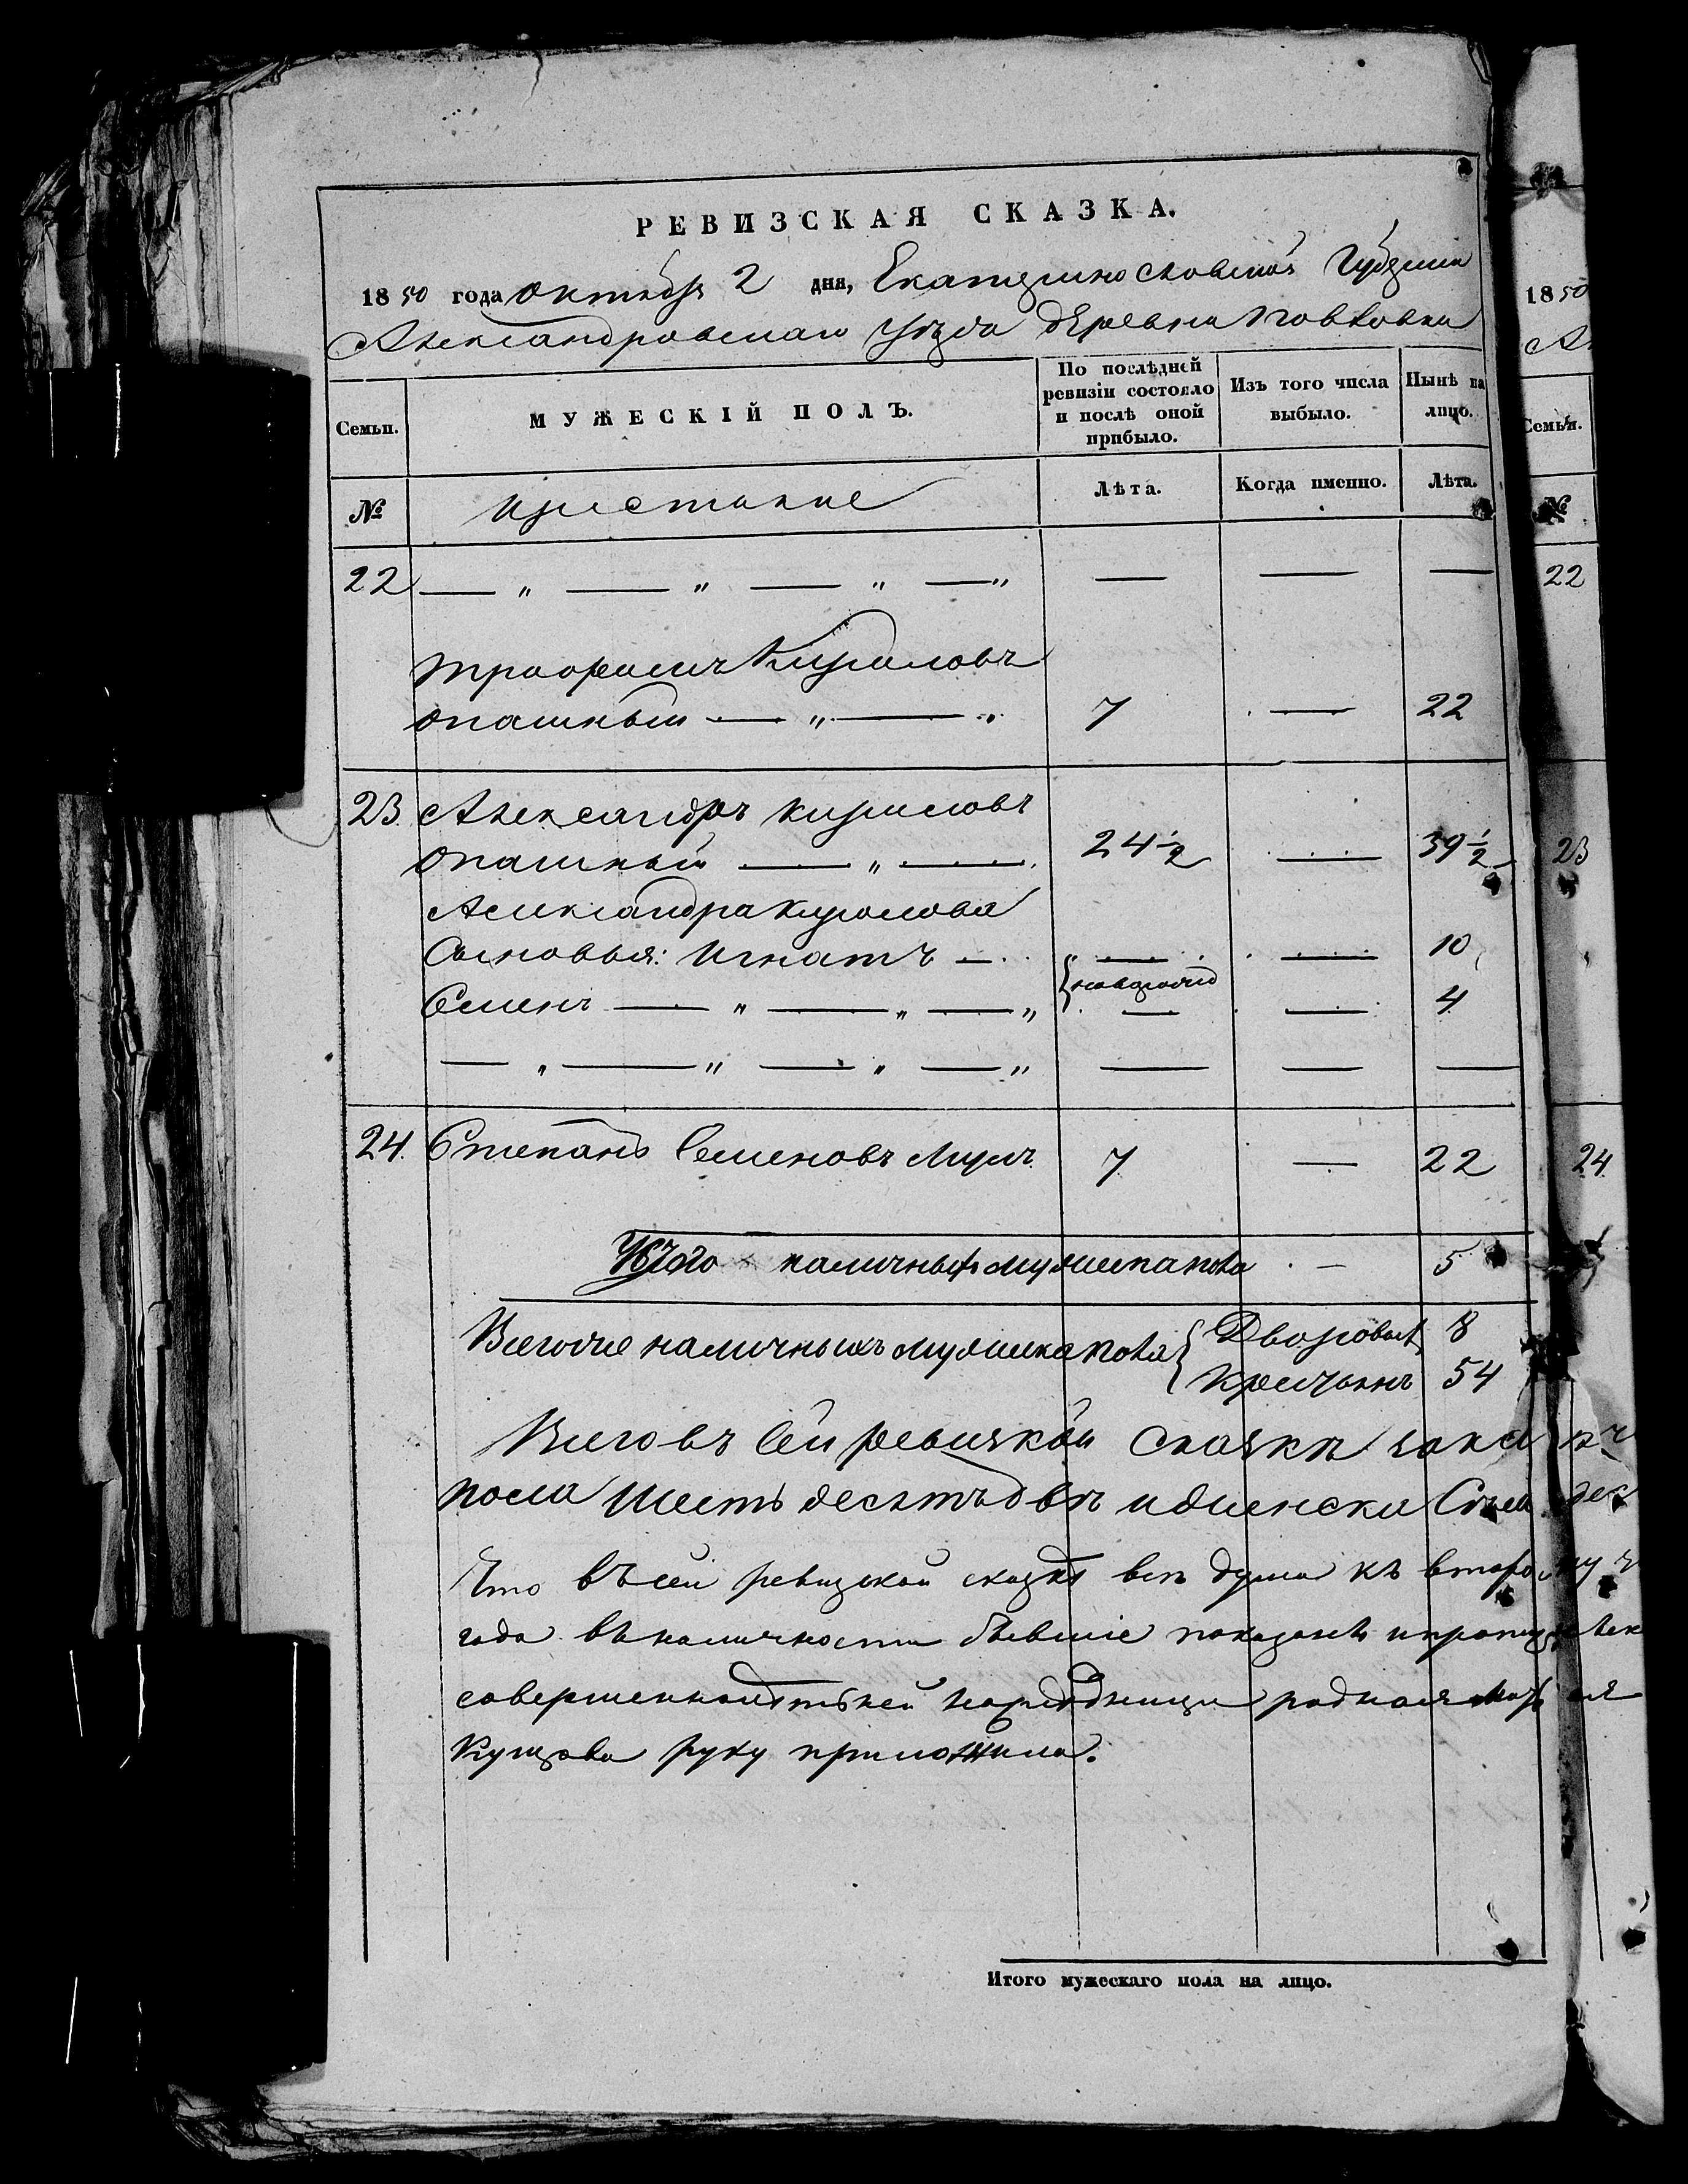 РЕВИЗСКАЯ СКАЗКА.
1850 года Октября 2 дня, Екатеринославской Губернии
Александровскаго уѣзда деревни Повловки
Семьи.
МУЖЕСКІЙ ПОЛЪ.
По послѣдней ревизіи состояло и послѣ оной прибыло.
Изъ того числа выбыло.
Нынѣ на лицо.
№
крестьяне
Лѣта.
Когда именно.
Лѣта.
22 — „ — „ — „ — „ — — —
Кириловъ
— „ — „ 7 — 22
23. Александръ Кириловъ
— „ — 24½ — 39½
Александра Кирилова
Сыновья: Игнатъ — „ — — 10
Семенъ — „ — „ — „ — — 4
— „ — „ — „ — „ — — —
24. Степанъ Семеновъ 7 — 22
Итого наличныхъ мужеска пола — 5
Всегоже наличныхъ мужеска пола { Дворовыхъ 8
Крестьянъ 54
Всего въ сей ревизкой сказкѣ
пола шесть десятъ двѣ и женска
Что въ сей ревизской сказкѣ всѣ души къ второму
года въ наличности бывшіе показаны и
родная
руку приложила.
Итого мужескаго пола на лицо.
1850
Семьи.
№
22
23
24